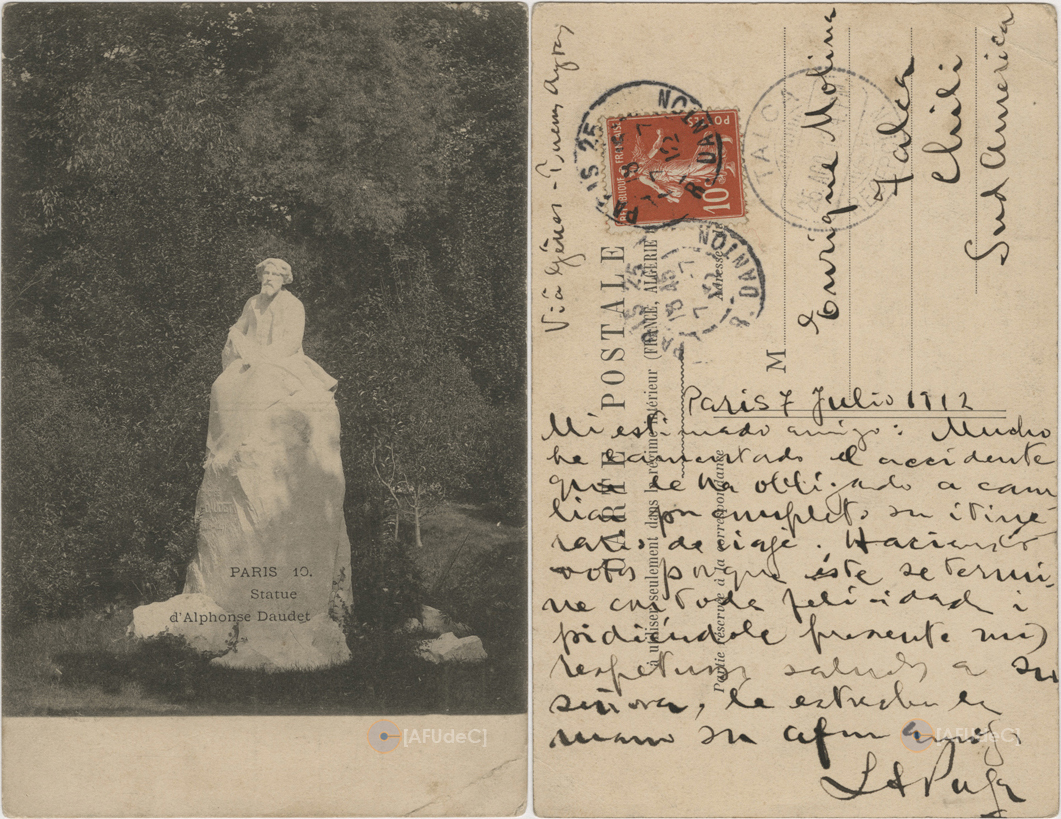 PARIS 10.
Statue
d'Alphonse Daudet
[AFUdeC]
Via Gênes - Buenos Ayres
CARTE POSTALE
à utiliser seulement dans le régime intérieur (FRANCE, ALGÉRIE
Partie réservée à la correspondance
Adresse
RÉPUBLIQUE FRANÇAISE
POSTES
10
PARIS 25
R. DANTON
PARIS 25
R. DANTON
TALCA
M
Enrique Molina
Talca
Chili
Sud America
Paris 7 Julio 1912
Mi estimado amigo: Mucho
he lamentado el accidente
que le ha obligado a cam
biar por completo su itine-
rario de viaje. Haciendo
votos porque éste se termi
ne con toda felicidad i
pidiéndole presente mis
respetuosos saludos a su
señora, le estrecha la
mano su afmo amigo
[AFUdeC]